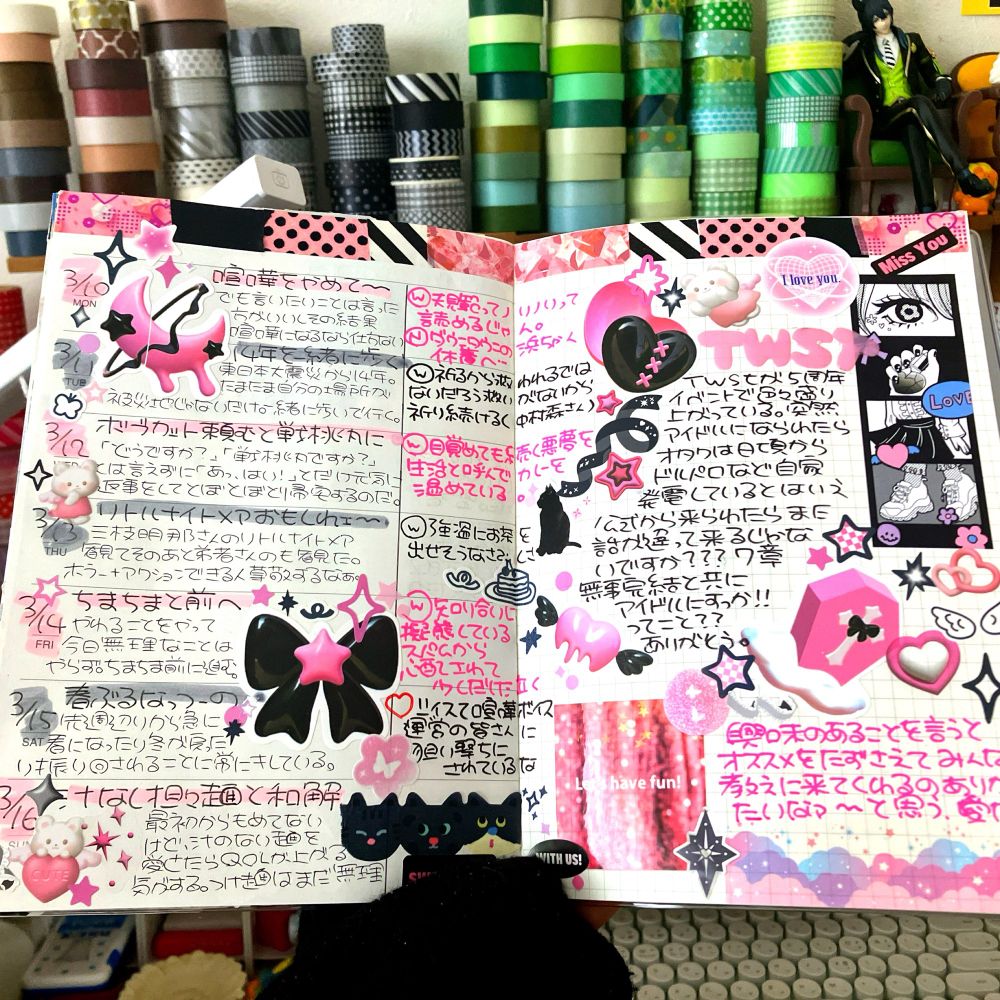 3/10
MON
喧嘩をやめて〜
でも言いたいことは言った
方がいいしその結果
喧嘩になるなら仕方ない
3/11
TUE
14年を一緒に歩く
東日本大震災から14年。
たまたま自分の場所が
じゃないだけ。一緒に歩いて行く。
3/12
ボブカット頼むと戦桃丸に
「どうですか?」「戦桃丸ですか?」
とは言えずに「あっ、はい!」とだけ元気に
返事をしてとぼとぼと帰宅するのだ。
3/13
THU
リトルナイトメアおもしれェ〜
三枝明那さんのリトルナイトメア
観てそのあと弟者さんのも観た。
ホラー+アクションできる人尊敬するなぁ。
3/14
FRI
ちまちまと前へ
やれることをやって
今日無理なことは
やらずちまちま前に進む
3/15
SAT
春ぶるなっつーの
先週辺りから急に
春になったり冬が戻った
り振り回されることに常にキレている。
3/16
SUN
汁なし担々麺と和解
最初からもめてない
けど、汁のない麺を
愛せたらQOLが上がる
気がする。つけ麺はまだ無理
CUTE
W
読めるじゃ
ん。
W
ダウ
休養へ…
浜
W
祈るから救
われるでは
ないだろう救い
がないから
祈り続けるく
中村森さん
W
目覚めても
悪夢を
生活と呼んで
温めている
W
強盗にお茶
を
出せそうなさ
W
知り合いに
擬態している
スパムから
心配されて
少しだけ泣く
ボイスで喧嘩ボイス
運営の皆さん
に
狙い撃ちに
されている
な
I love you.
Miss You
TWST
LOVE
TWSTが5周年
イベントで色々盛り
上がっている。突然
アイドルになられたら
オタクは日頃から
ドルパロなど自家
発電しているとはいえ
公式から来られたらまた
話が違って来るじゃな
いですか??? 7章
無事完結と共に
アイドルにすっか!!
ってこと??
ありがとう。
Let's have fun!
WITH US!
興味のあることを言うと
オススメをたずさえてみんな
教えに来てくれるのありが
たいなァ〜と思う。愛